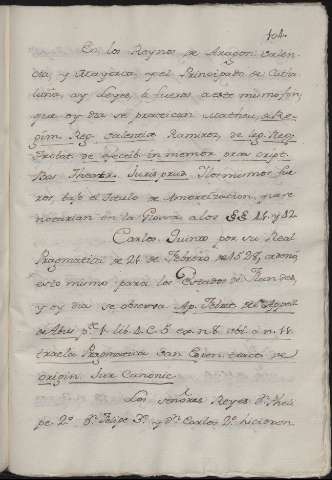 104.
En los Reynos de Aragon Valen-
cia, y Mayorca, y el Principado de Cata-
luña, ay Leyes, ò fueros a este mismo fin,
que oy dia se practican Matheu de Reg-
gim. Reg. Valentiæ Ramirez, de leg. Reg.
Frotat. de in memor.
Theatr. Jurisprud. Y los mismos fue-
ros, baxo el titulo de Amortizacion, que se
notaràn en la Glosa a los §§ 11. y 12
Carlos Quinto por su Real
Pragmatica de 21 de Febrero de 1528, ordenò
esto mismo para los Estados de Flandes,
y oy dia se observa Ap. Febret de Appell
de Abus p.te 1. lib. 4. C. 5 ex n. 8. ubi â n. 11.
trae la Pragmatica Van Espen tract. de
origin. Jur. Canonic.
Los Señores Reyes Dn. Pheli-
pe 2º. Dn. Felipe 3º. y Dn. Carlos 2º. hicieron